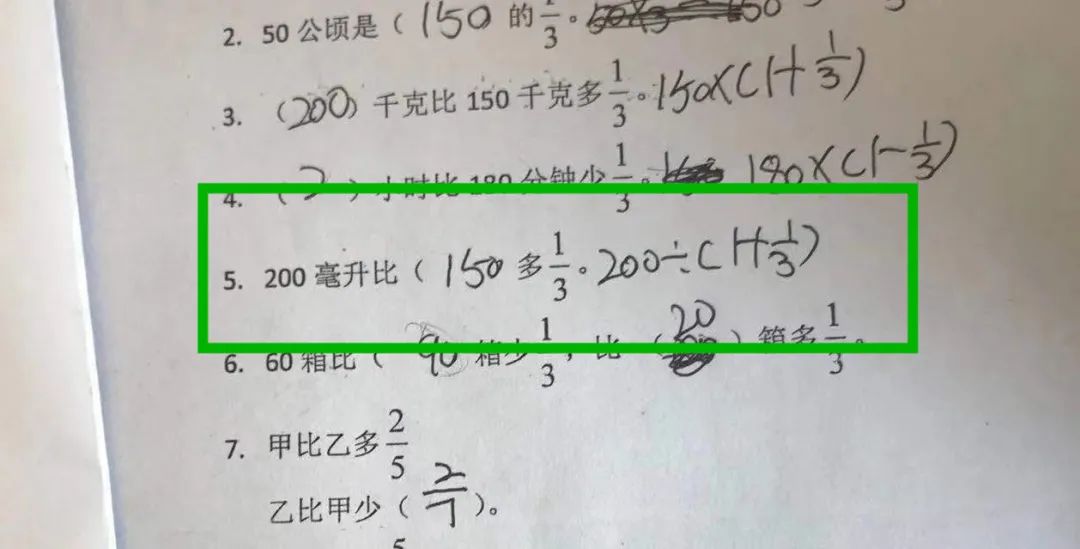 2. 50 公顷是（150 的 1/3。
3. （200）千克比 150 千克多 1/3。150×(1+1/3)
4. （2）小时比 180 分钟少 1/3。180×(1-1/3)
5. 200 毫升比（150 多 1/3。200÷(1+1/3)
6. 60 箱比（90 箱少 1/3，比（20）箱多 1/3。
7. 甲比乙多 2/5
乙比甲少（2/7）。
5